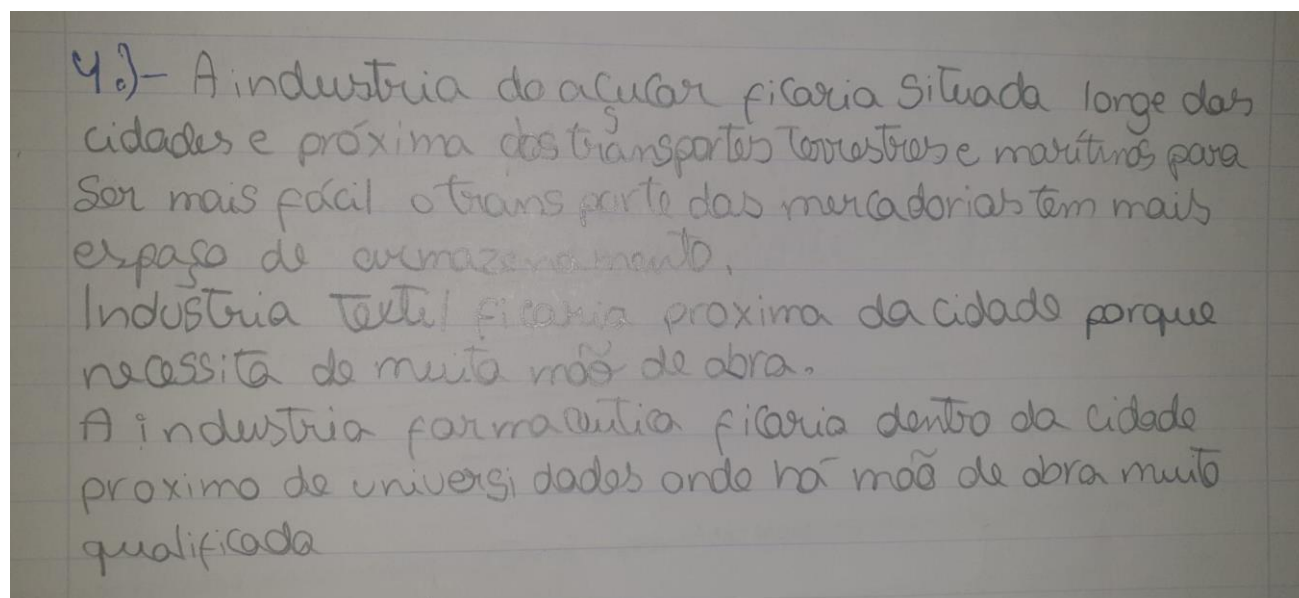 4.)- A industria do açucar ficaria situada longe das
cidades e próxima dos transportes terrestres e marítimos para
ser mais fácil o transporte das mercadorias tem mais
espaço de armazenamento.
Industria Textil ficaria proxima da cidade porque
necessita de muita moõ de obra.
A industria farmaceutica ficaria dentro da cidade
proximo de universidades onde há moõ de obra muito
qualificada